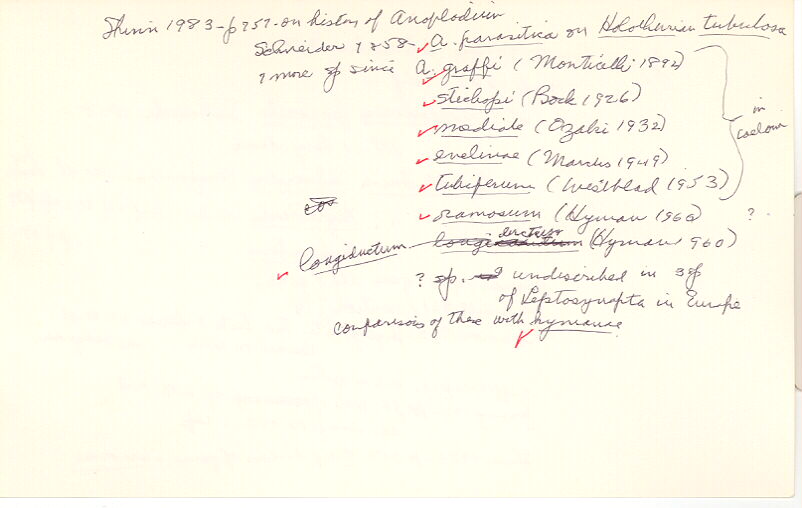 Shinn 1983 - p 757 - on history of Anoplodium
Schneider 1858 - A. parasitica on Holothurian tubulosa
7 more sp since A. graffi (Monticelli 1892)
stichopi (Bock 1926)
mediale (Ozaki 1932)
evelinae (Marcus 1949)
tubiferum (Westblad 1953)
in coelom
ramosum (Hyman 1960) ?
longiductum (Hyman 1960)
? sp. undescribed in 3 sp
of Leptosynapta in Europe
comparisois of these with hymanae